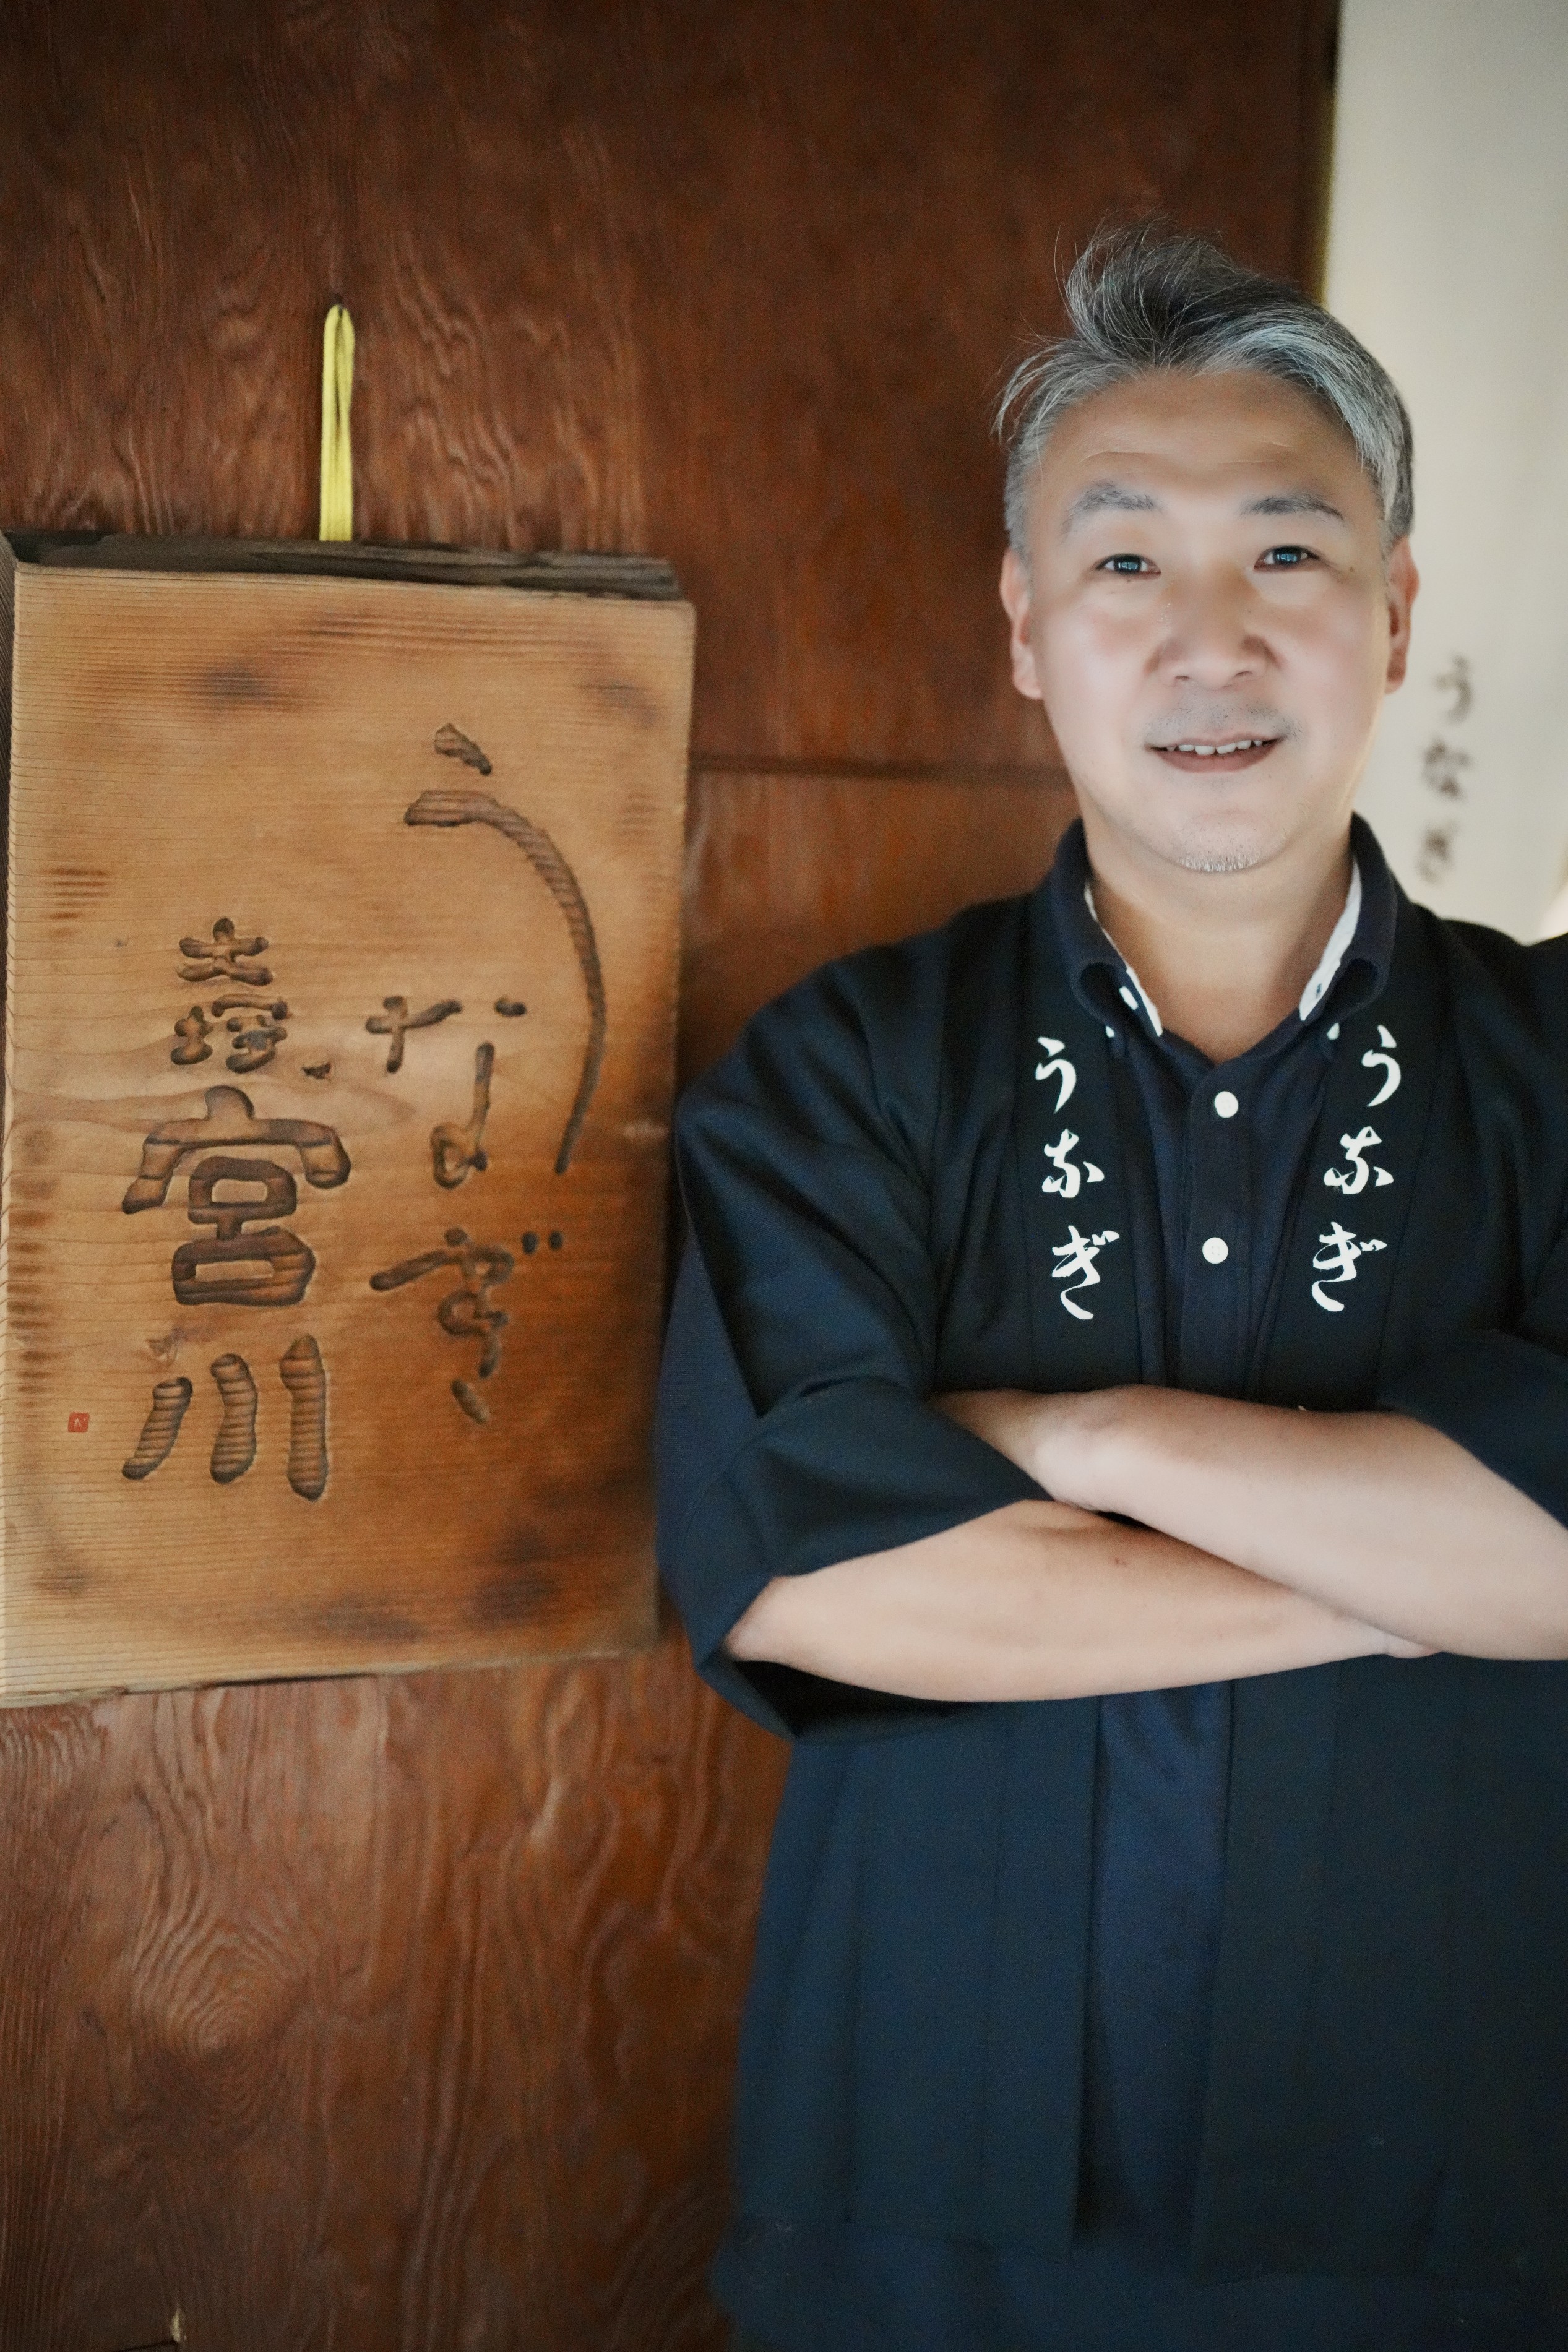 うなぎ
大塚宮川
うなぎ
うなぎ
うなぎ